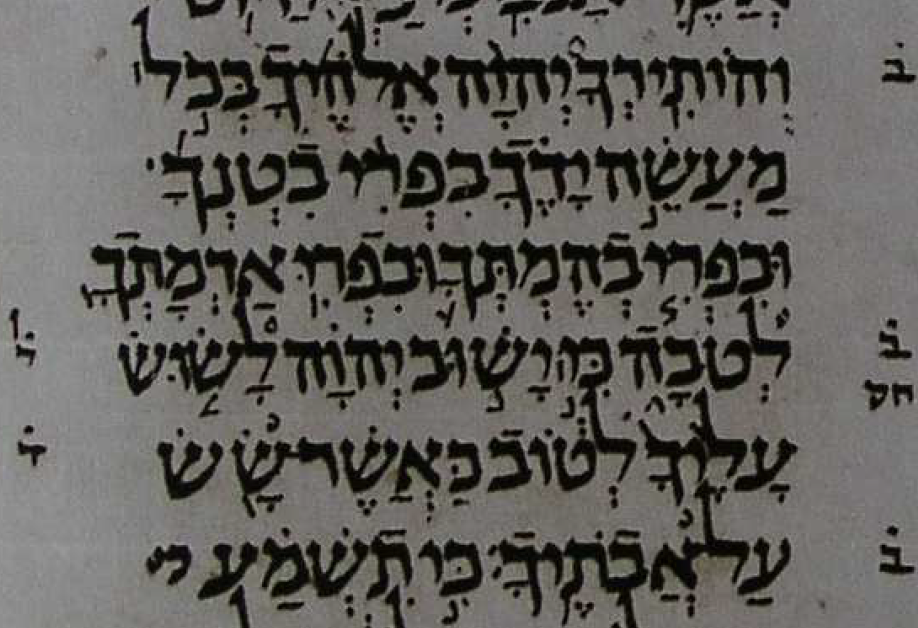 ב̇ וְהוֹתִֽירְךָ֩ יְהוָ֨ה אֱלֹהֶ֜יךָ בְּכֹ֣ל
מַעֲשֵׂ֣ה יָדֶ֗ךָ בִּפְרִ֨י בִטְנְךָ֜
וּבִפְרִ֧י בְהֶמְתְּךָ֛ וּבִפְרִ֥י אַדְמָתְךָ֖
ב̇ חס לְטֹבָ֑ה כִּ֣י ׀ יָשׁ֣וּב יְהוָ֗ה לָשׂ֤וּשׂ ל̇
עָלֶ֙יךָ֙ לְט֔וֹב כַּאֲשֶׁר־שָׂ֖שׂ ד̇
ב̇ עַל־אֲבֹתֶֽיךָ׃ כִּ֣י תִשְׁמַ֗ע